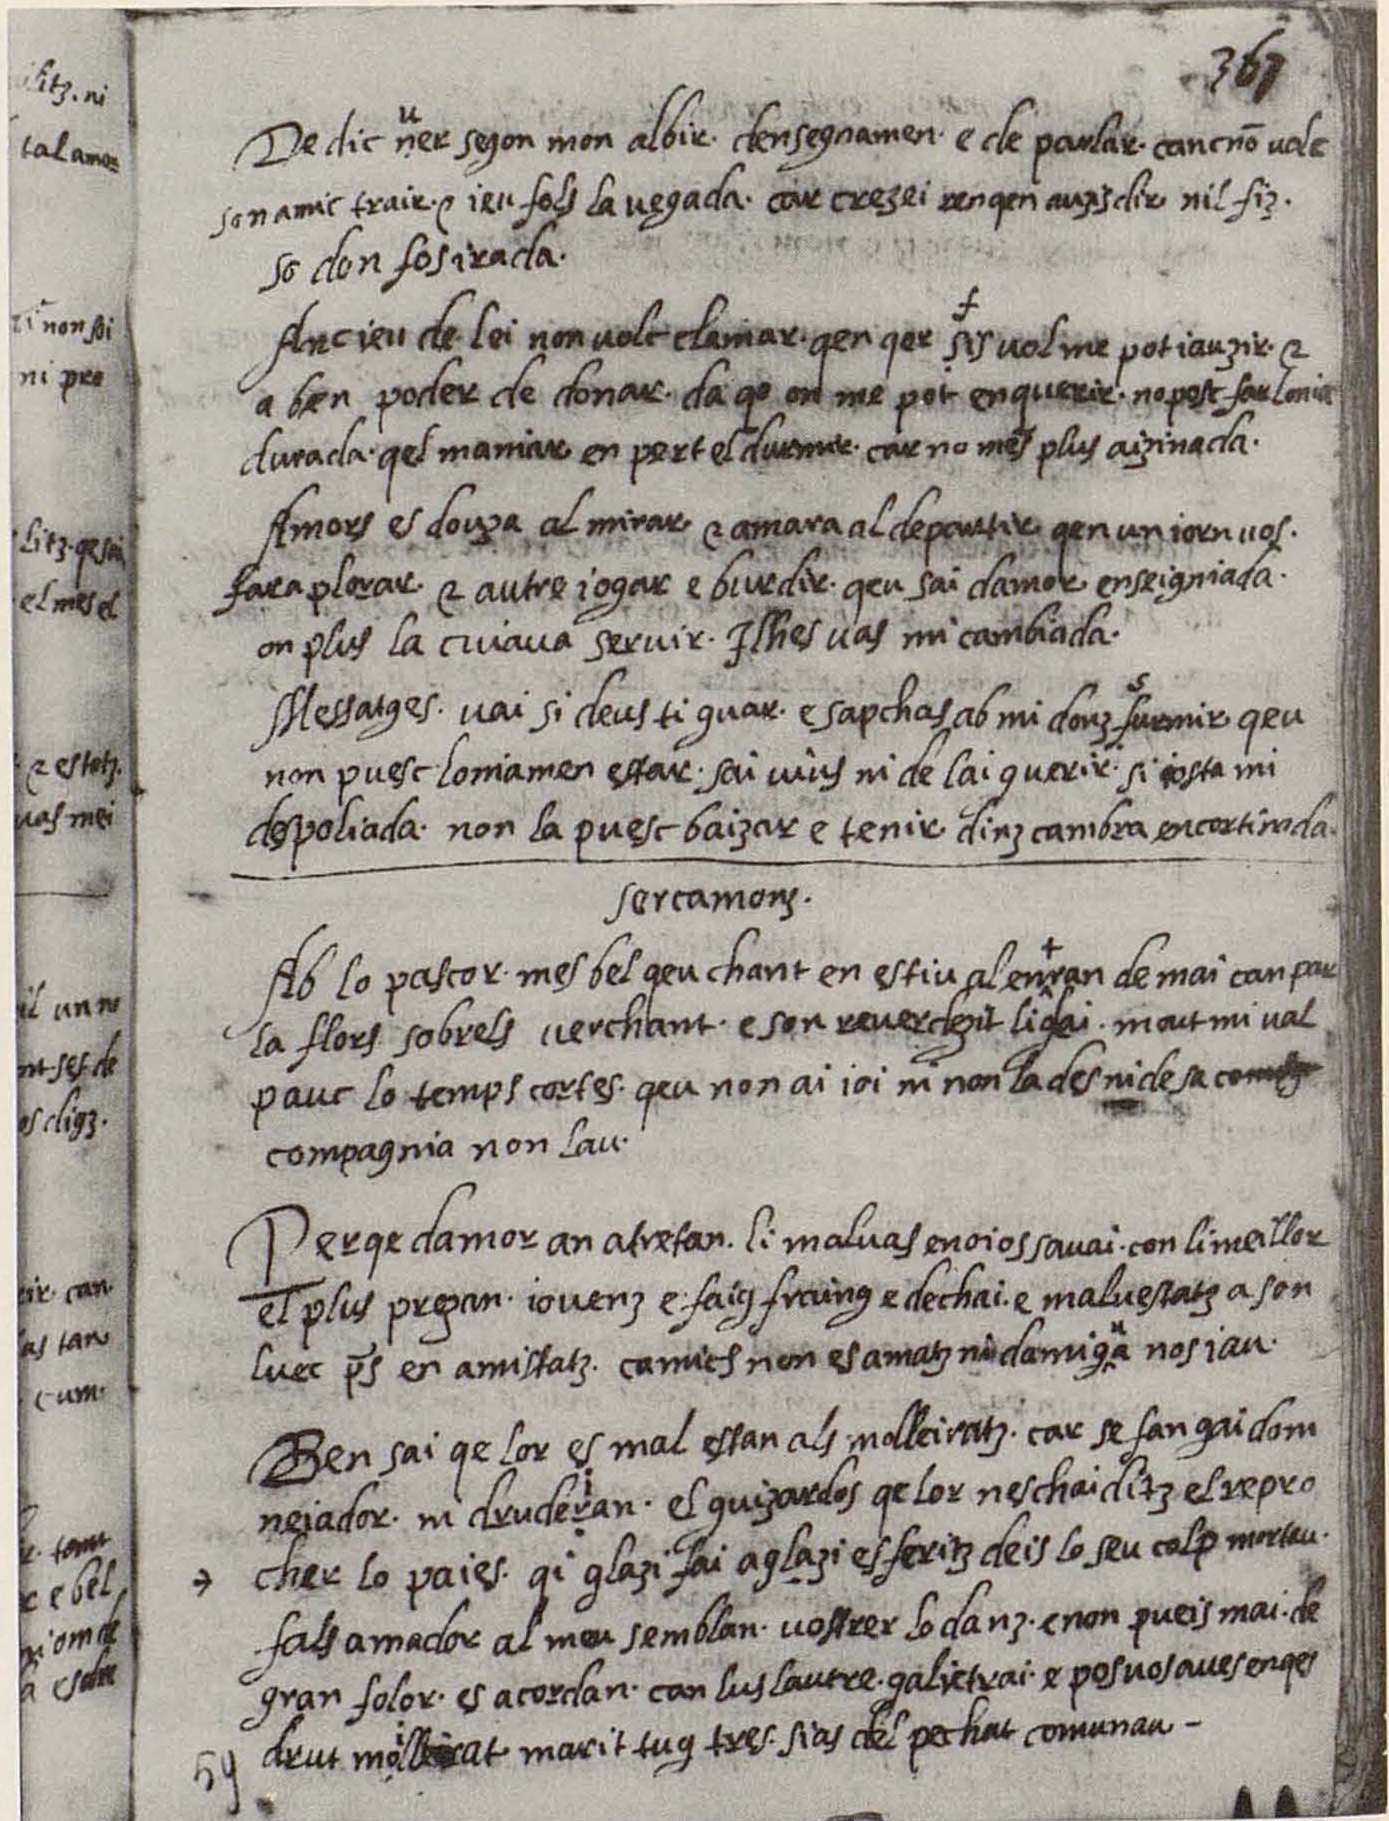 litz. ni
tal amor
non soi
ni pre
litz. qe sai
el mes el
⁊ es totz.
uas mei
il un no
nt. ses de
os digz.
air. can
as tan
cum.
. tant
c e bel
ni om de
a esdre
361
De dic uer segon mon albir. densegnamen. e de parlar. canc nō uolc
son amic trair. ⁊ ieu fols la uegada. car crezei ren qen auzis dir. nil fiz.
so don fos irada.
Anc ieu de lei non uolc clamar. qen qer sis uol me pot iauzir. ⁊
a ben poder de donar. da qo on me pot enquerir. no posc far lonia
durada. qel maniar en pert el durmir. car no mes plus aizinada.
Amors es douza al mirar ⁊ amara al departir qen un iorn uos.
fara plorar. ⁊ autre iogar e burdir. qeu sai damor enseigniada.
on plus la cuiaua seruir. Ilhes uas mi cambiada.
Messatges. uai si deus ti guar. e sapchas ab mi donz furmir qeu
non puesc loniamen estar. sai uius ni de lai guerir. si iosta mi
despoliada. non la puesc baizar e tenir dinz cambra encortinada.
Sercamonz.
Ab lo pascor. mes bel qeu chant en estiu al entran de mai can par
la flors sobrels uerchant. e son reuerdezit li glai. mout mi ual
pauc lo temps cortes. qeu non ai ioi ni non lades ni de sa
compagnia non lau.
Perqe damor an atretan. li maluas enoios sauai. con li meillor
el plus prezan. iouenz e faig fraing e dechai. e maluestatz a son
luec p̄s en amistatz. camics non es amatz ni damiga nos iau.
Ben sai qe lor es mal estan als molleiratz. car se fan gai dom
neiador. ni druderian. el guizardos qe lor neschai ditz el repro
cher lo paies. qi glazi fai a glazi es feritz deis lo seu colp mortau.
fals amador al meu semblan. uostrer lo danz. e non pueis mai. de
gran folor. es acordan. can lus lautre. galietrai. e pos uos aues enqes
drut moillerat marit tug tres. sias del pechat comunau –
59